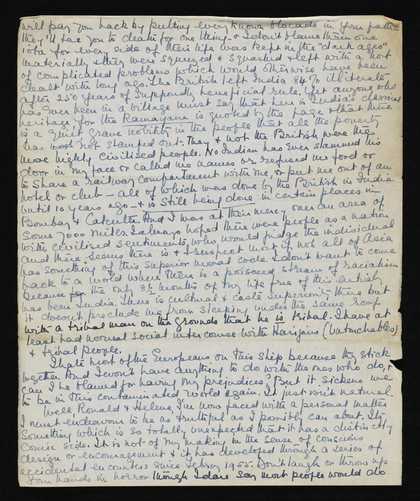 will pay you back by putting every known blockade in your path
they'll tax you to death for one thing. & I don't blame them one
iota for every side of their life was kept in the "dark ages"
materially & they were strangled & squashed & left with a host
of complicated problems which would otherwise have been
dealt with long ago. The British left India 84% illiterate
after 250 years of supposedly beneficial rule. Yet anyone who
has ever been in a village must say that here is India's
where for the Ramayana is quoted by the page & that there
is a quiet grave nobility in the people that all the poverty
has not stamped out. They & not the British were the
more highly civilised people. No Indian has ever slammed his
door in my face or called me names or refused me food or
to share a railway compartment with me, or put me out of an
hotel or club – all of which was done by the British in India
until 10 years ago – & is still being done in certain places in
Bombay & Calcutta. And I was at their mercy over an area of
some 7000 miles. I always hoped there were people as a nation
with civilised sentiments who would judge the individual
and there seems there is & I suspect most if not all of Asia
has something of this superior moral code. I don't want to come
back to a world where there is a poisoned stream of racialism
because for the only 3½ months of my life free of this
has been India. There is cultural & caste superiority there but
it doesn't preclude me from sleeping under the same roof
with a tribal man on the grounds that he is tribal. I have at
least had normal social intercourse with Harijans (Untouchables)
& tribal people.
I hate most of the Europeans on this ship because they stick
together and I won't have anything to do with the ones who do, &
can I be blamed for having my prejudices? But it sickens me
to be in this contaminated world again. It just isn't natural.
Well Ronald & Helen I'm now faced with a personal matter
I must endeavour to be as truthful as I possibly can about. It's
something which is so totally unexpected that it has a distinctly
comic side. It is not of my making in the sense of conscious
design or encouragement & it has developed through a series of
accidental encounters since February 1955. Don't laugh or throw up
your hands in horror though I dare say most people would do